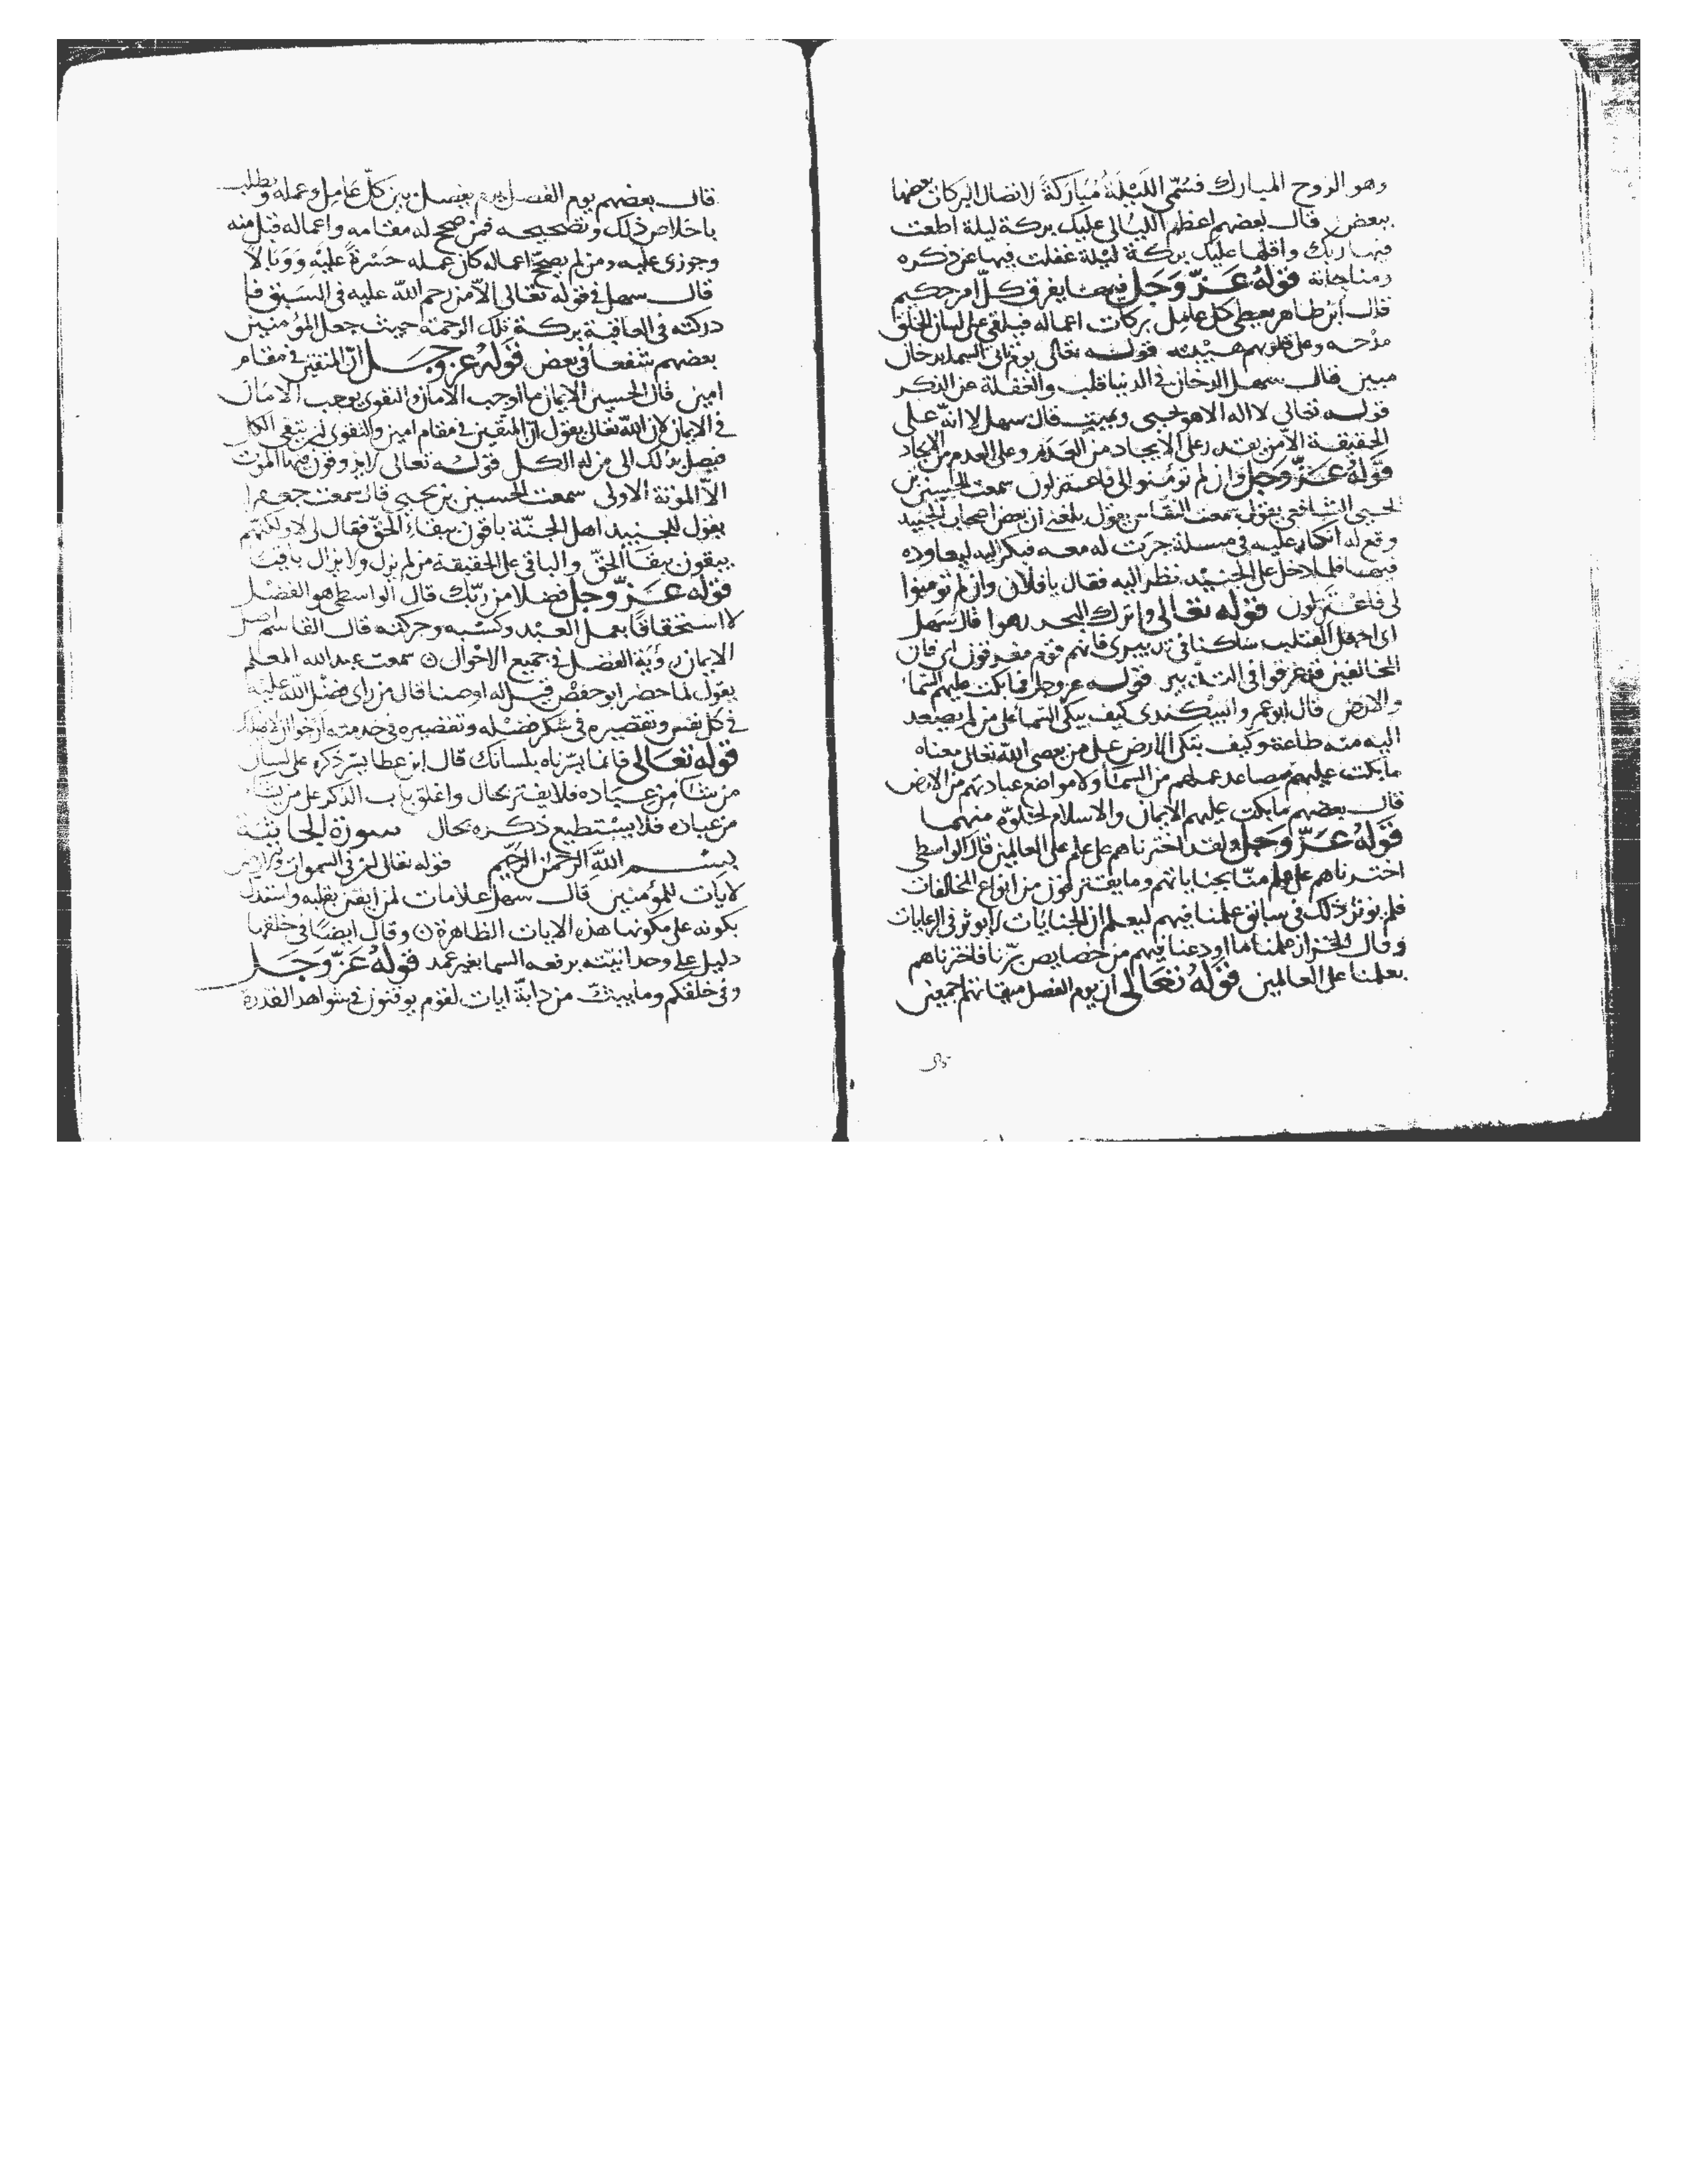 وهو الروح المبارك فسُمّي اللَّيْلَةُ مُبَارَكَةً لاتصال البركات بعضها
ببعض قال بعضهم اعظم الليالي عليك بركة ليلة اطعت
فيها ربك واقلها عليك بركة ليلة غفلت فيها عن ذكره
ومناجاته قوله عَزّ وَجَل فيها يفرق كلّ امر حكيم
قال ابن طاهر يعطي كل عامل بركات اعماله فيلقي على لسان الخلق
مدحه وعلى قلوبهم هيبته قوله تعالى يوم تاتي السما بدخان
مبين قال سهل الدخان في الدنيا قلب والغفلة عن الذكر
قوله تعالى لا اله الا هو يحيي ويميت قال سهل لا اله على
الحقيقة الا من يقدر على الايجاد من العدم وعلى العدم من الايجاد
قوله عَزّ وَجل وان لم تومنوا لي فاعتزلون سمعت الحسين بن
يحيى الشافعي يقول سمعت يقول بلغني ان بعض اصحاب الجنيد
وقع له انكار عليه في مسلة جرت له معه فبكر اليه ليعاوده
فيها فلما دخل على الجنيد نظر اليه فقال يا فلان وان لم تومنوا
لي فاعتزلون قوله تعالى واترك البحر رهوا قال سهل
اي اجعل القلب ساكنا في تدبيري فانهم قوم مغرقون اي فان
المخالفين قد غرقوا في التدبير قوله عز وجل فما بكت عليهم السما
والارض قال ابو عمرو البيكندي كيف تبكي السما على من لم يصعد
اليه منه طاعة وكيف تبكي الارض على من يعصي الله تعالى معناه
ما بكت عليهم مصاعد عملهم من السما ولا مواضع عبادتهم من الارض
قال بعضهم ما بكت عليهم الايمان والاسلام لخلوّه منهما
قوله عَزّ وَجل ولقد اخترناهم على علم على العالمين قال الواسطي
اخترناهم على علم منّا بجناياتهم وما يقترفون من انواع المخالفات
فلم يوثر ذلك في سابق علمنا فيهم ليعلم ان الجنايات لا يوثر في الرعايات
وقال الخراز علمنا ما اودعنا فيهم من خصايص برّنا فاخترناهم
بعلمنا على العالمين قوله تعالى ان يوم الفصل ميقاتهم اجمعين
قال بعضهم يوم الفصل يوم يفصل بين كلّ عامل وعمله ويطلب
باخلاص ذلك وتصحيحه فمن صح له مقامه واعماله قبل منه
وجوزي عليه ومن لم يصحّ اعماله كان عمله حَسْرةً عليه وَوَبَالا
قال سهل في قوله تعالى الا من رحم الله عليه في السبق فا
دركته في العاقبة بركة تلك الرحمة حيث جعل المؤمنين
بعضهم شفعا في بعض قوله عز وجل انّ المتقين في مقام
امين قال الحسين الايمان ما اوجب الامان والتقوى يوجب الامان
في الايمان لان الله تعالى يقول ان المتقين في مقام امين والتقوى ان يتقي الكل
فيصل بذلك الى من له الكل قوله تعالى لا يذوقون فيها الموت
الاّ الموتة الاولى سمعت الحسين بن يحيى قال سمعت جعفرا
يقول للجنيد اهل الجنّة باقون ببقاء الحقّ فقال لي لا ولكنهم
يبقون ببقاء الحقّ والباقي على الحقيقة من لم يزل ولا يزال باقيا
قوله عَزّ وجل فضلا من ربّك قال الواسطي هو الفضل
لا استحقاقا بعمل العبد وكسبه وحركته قال القاسم اصل
الايمان رؤية الفضل في جميع الاحوال سمعت عبد الله المعلم
يقول لما حضر ابو حفص قيل له اوصنا قال من راى فضل الله عليه
في كل نفس وتقصيره في شكر فضله وتقصيره في خدمته
قوله تعالى فانما يسّرناه بلسانك قال ابن عطا يسّر ذكره على لسان
من شا من عباده فلا يفتر بحال واغلق باب الذكر على من شا
من عباده فلا يستطيع ذكره بحال سورة الجاثية
بسم الله الرحمن الرحيم قوله تعالى ان في السموات والارض
لايات للمؤمنين قال سهل علامات لمن ايقن بقلبه واستدل
بكونه على مكونها هذه الايات الظاهرة وقال ايضا في خلقها
دليل على وحدانيته برفعه السما بغير عمد قوله عَزّ وَجَل
وفي خلقكم وما يبثّ من دابّة ايات لقوم يوقنون في شواهد القدرة